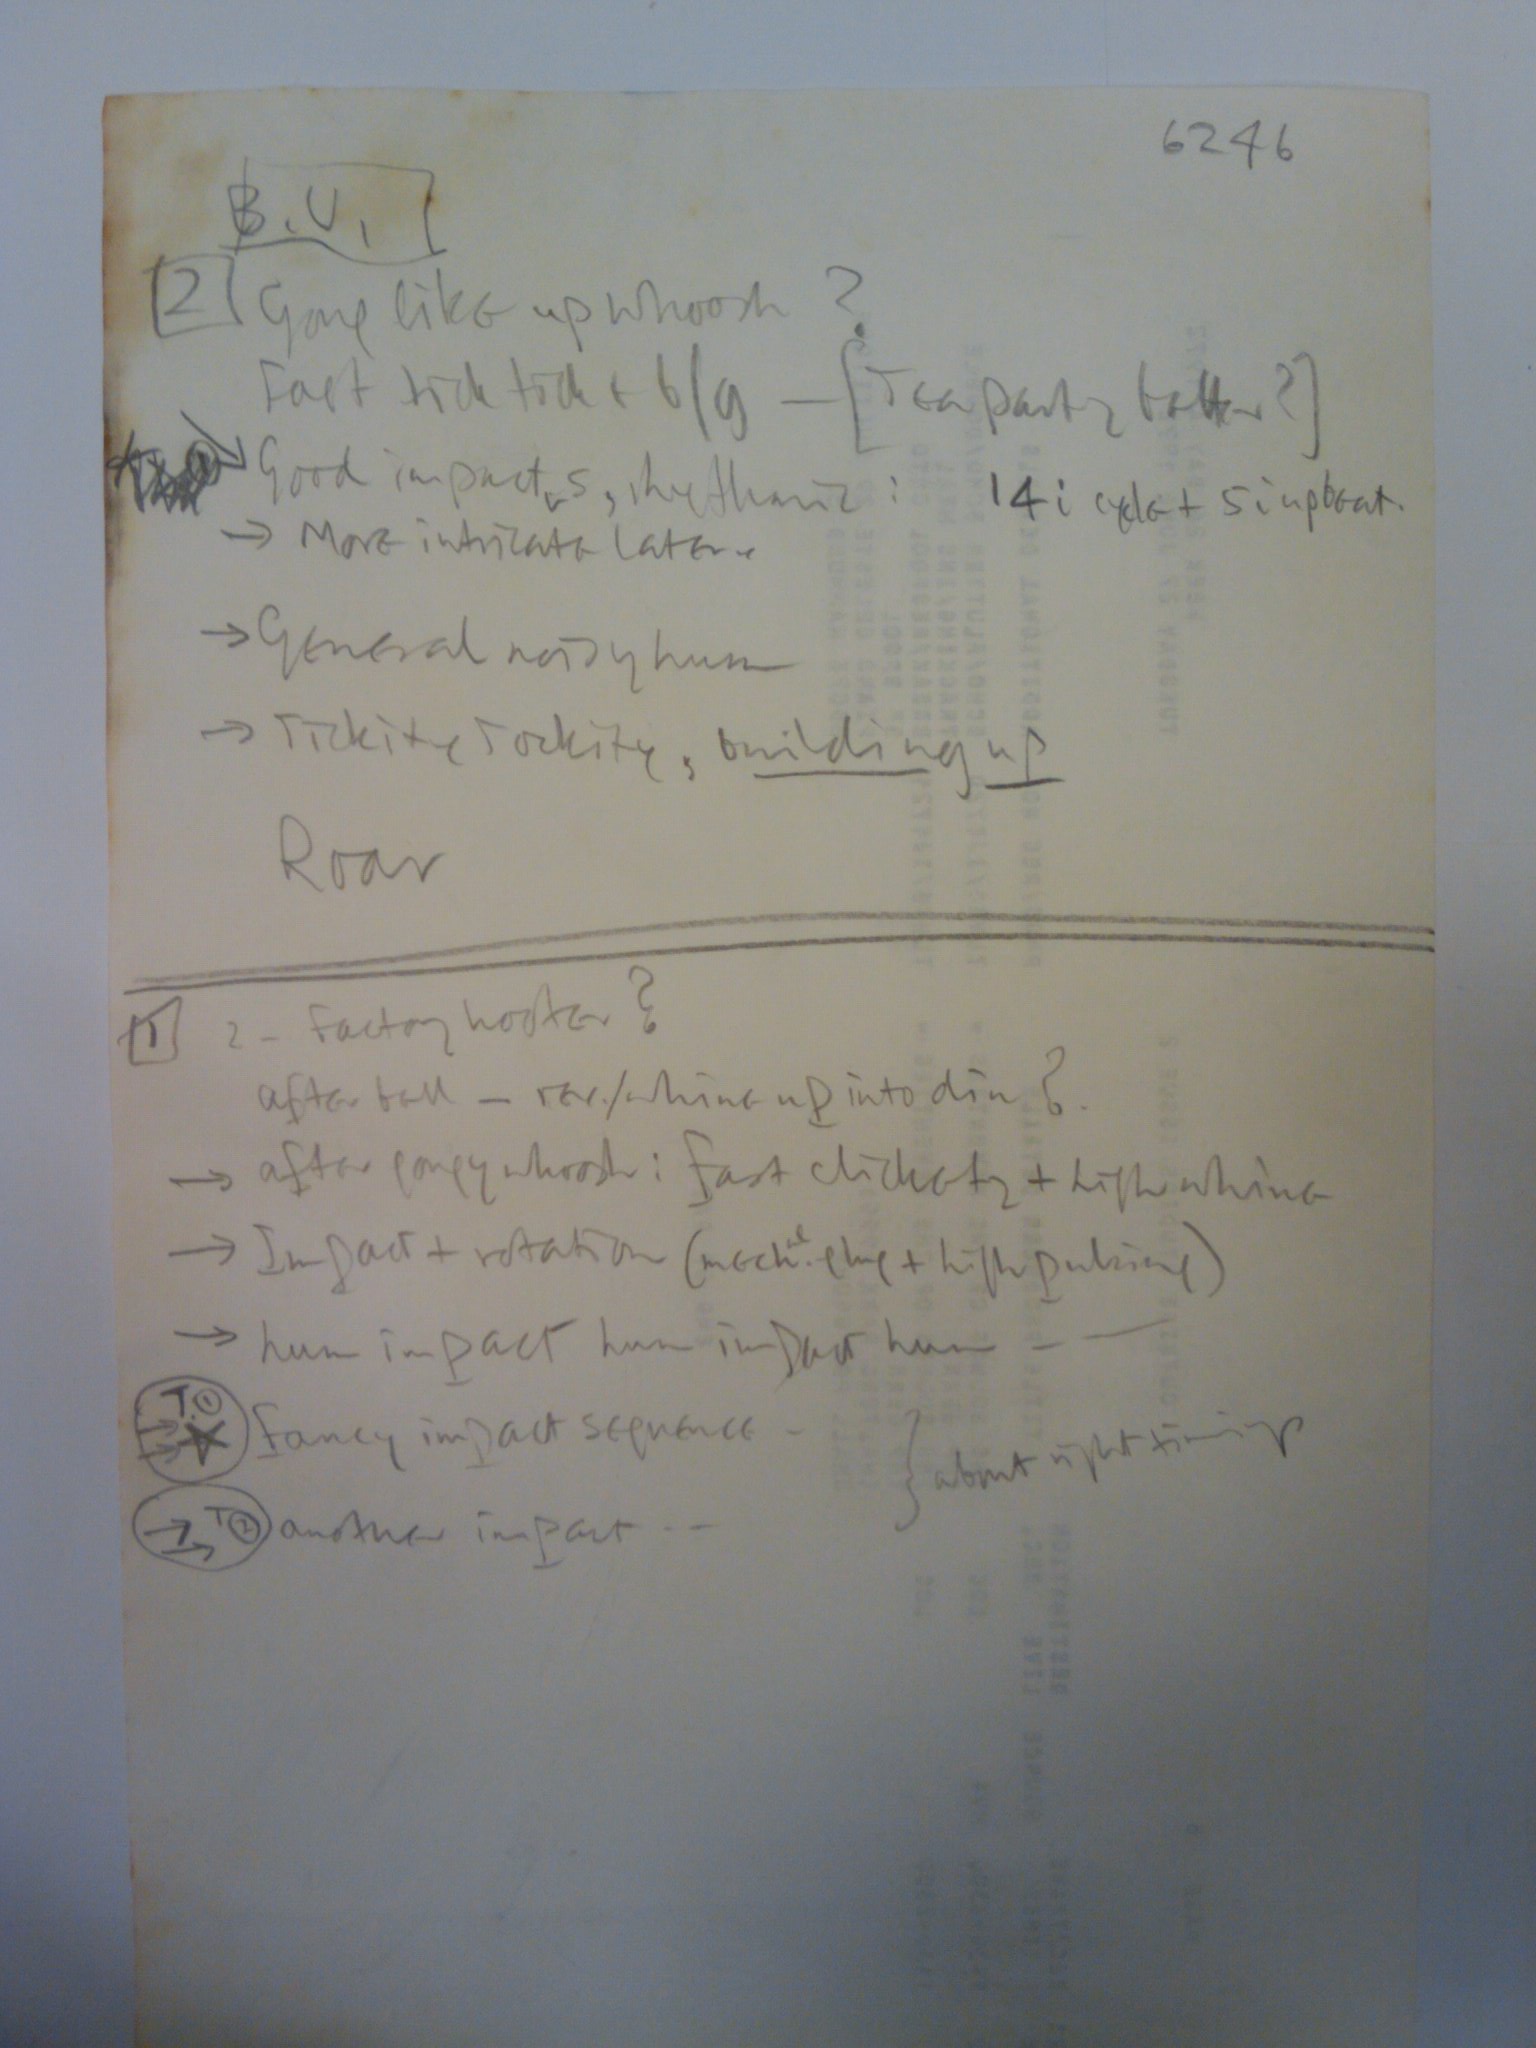 6246
B.U.
2 Gong like up whoosh?
Fast tick tock + b/g — [Tea party better?]
Good impacts, rhythmic: 14i cycle + 5i upbeat.
→ More intricate later.
→ General noisy hum
→ Tickity Tockity, building up
Roar
1 2 - Factory hooter?
after bell — rev./whine up into din?
→ after gongy whoosh: fast clickety + high whine
→ Impact + rotation (mech. + high pulsing)
→ hum impact hum impact hum - —
T① → Fancy impact sequence -
} about right timings
→ T② another impact - -